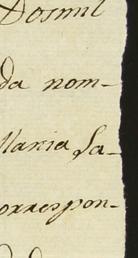 Dosmil
da nom-
Maria Sa-
orrespon-